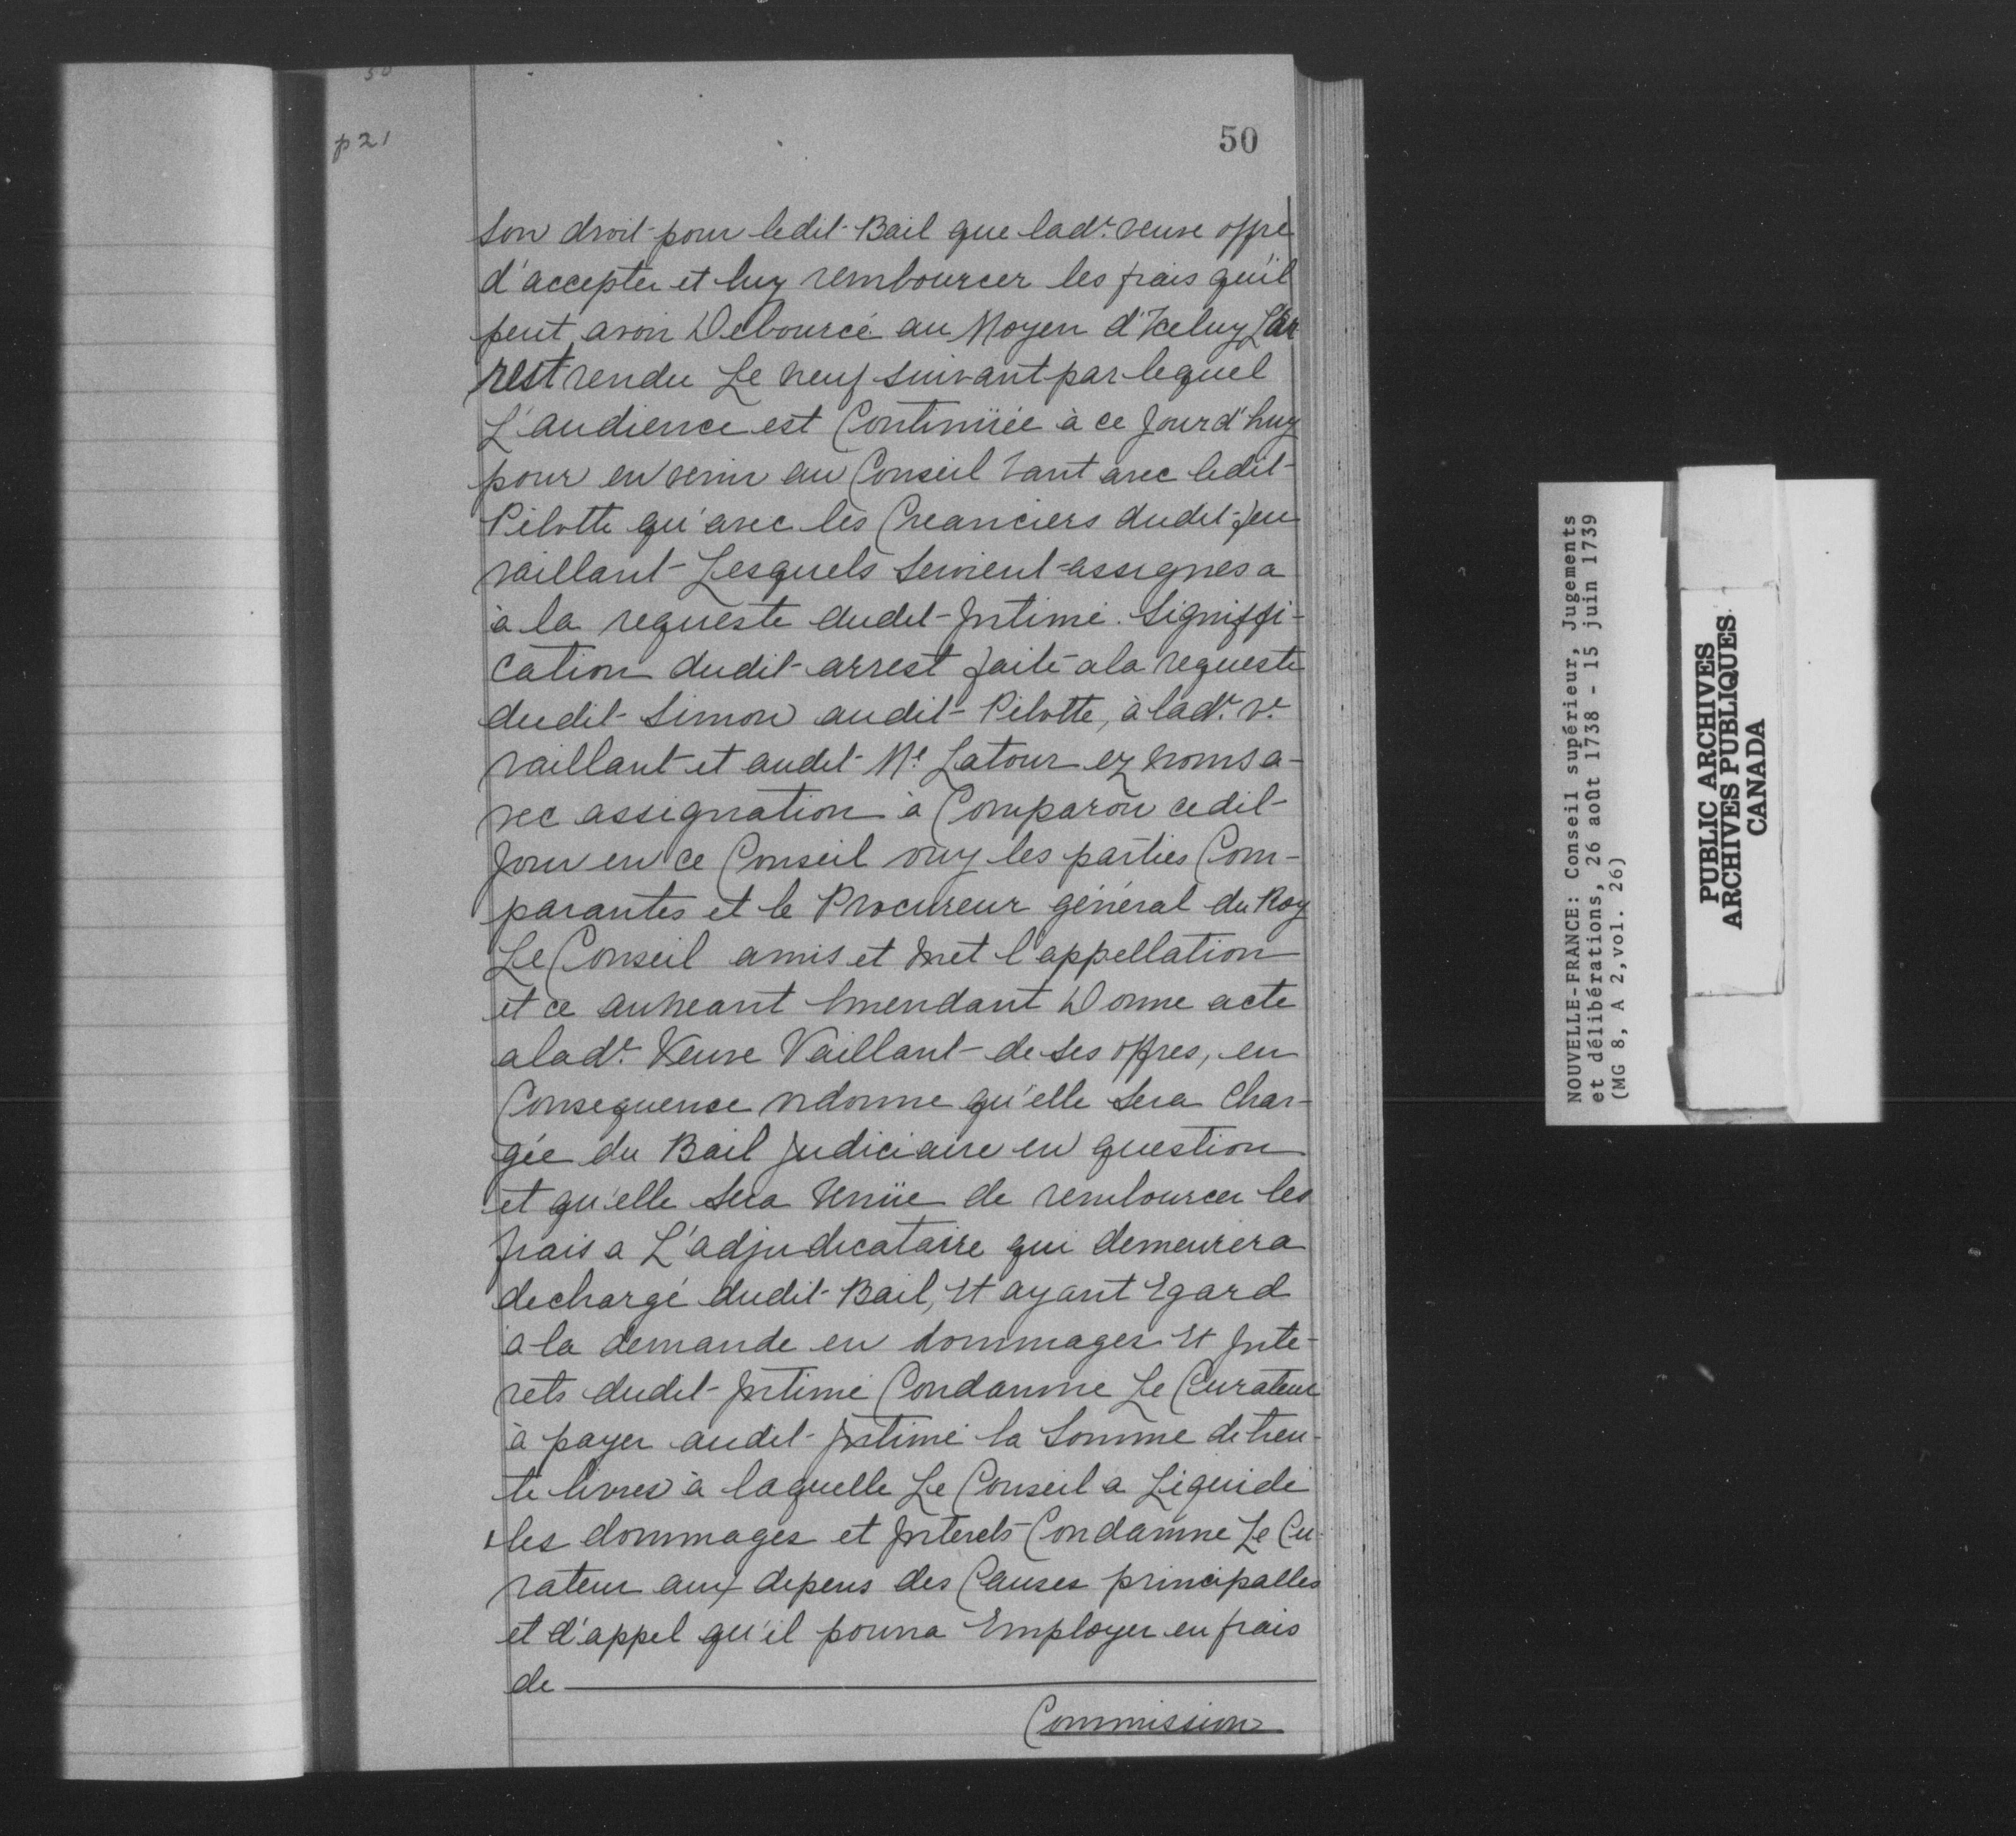 50
p 21
50
son droit pour ledit Bail que lad.t veuve offre
d'accepter et luy rembourcer les frais qu'il
peut avoir Debourcé au Moyen d'Iceluy L'ar
rest rendu Le neuf suivant par lequel
L'audience est Continüée à ce Jourd'huy
pour en venir au Conseil tant avec ledit
Pilotte qu'avec les Creanciers dudit feu
vaillant Lesquels seroient assignes a
à la requeste dudit Intimé. Signiffi-
cation dudit arrest faite a la requeste
dudit Simon audit Pilotte, à lad.t v.e
vaillant et audit M.e Latour ez noms a-
vec assignation à Comparoir cedit
Jour en ce Conseil ouy les parties Com-
parantes et le Procureur général du Roy
Le Conseil a mis et met l'appellation
et ce au neant Emendant Donne acte
a lad.t Veuve Vaillant de ses offres, en
Consequence ordonne qu'elle sera Char-
gée du Bail Judiciaire en question
et qu'elle sera tenüe de rembourcer les
frais a L'adjudicataire qui demeurera
dechargé dudit Bail, Et ayant Egard
a la demande en dommages Et Inte-
rets dudit Intimé Condamne Le Curateur
à payer audit Intimé la Somme de tren-
te livres à laquelle Le Conseil a Liquidé
les dommages et Interets Condamne Le Cu-
rateur aux depens des Causes principalles
et d'appel qu'il pourra Employer en frais
de
Commission
NOUVELLE-FRANCE: Conseil supérieur, Jugements
et délibérations, 26 août 1738 - 15 juin 1739
(MG 8, A 2, vol. 26)
PUBLIC ARCHIVES
ARCHIVES PUBLIQUES
CANADA